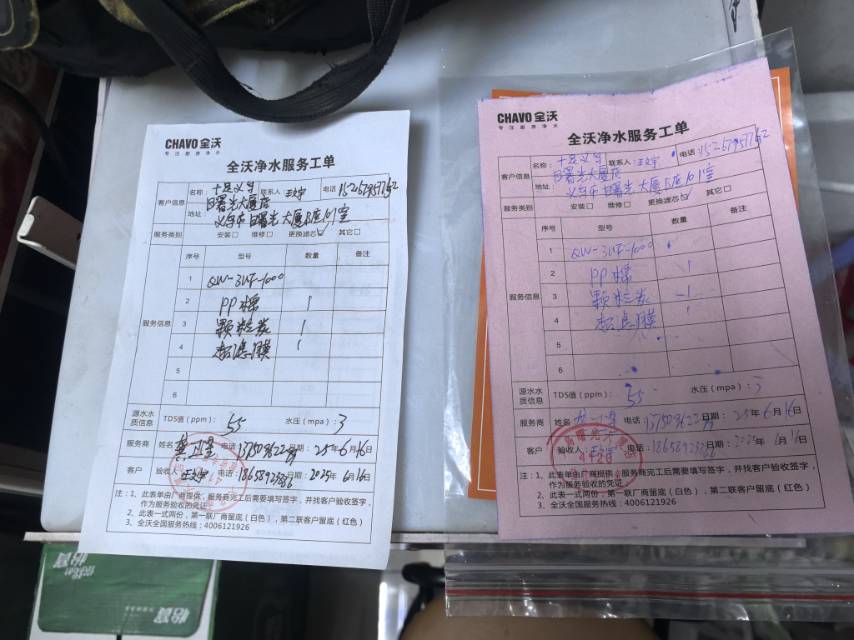 CHAVO 全沃
专注厨房净水
全沃净水服务工单
客户信息 名称: 联系人: 电话
日曙光大厦店
地址: 义乌市曙光大厦B座101室
服务类别 安装□ 维修□ 更换滤芯☑ 其它□
服务信息 序号 型号 数量 备注
1 QW-3UF-1000
2 PP棉 1
3 颗粒炭 1
4 超滤膜 1
5
6
源水水质信息 TDS值(ppm): 55 水压(mpa): 3
服务商 姓名 电话 日期: 25年6月16日
客户 验收人 电话: 18658923266 2025年6月16日
注:1、此表单由厂商提供,服务商完工后需要填写签字,并找客户验收签字,
作为服务验收的凭证。
2、此表一式两份,第一联厂商留底(白色),第二联客户留底(红色)
3、全沃全国服务热线:4006121926
CHAVO 全沃
专注厨房净水
全沃净水服务工单
客户信息 名称: 联系人: 电话
日曙光大厦店
地址: 义乌市曙光大厦B座101室
服务类别 安装□ 维修□ 更换滤芯☑ 其它□
服务信息 序号 型号 数量 备注
1 QW-3UF-1000
2 PP棉 1
3 颗粒炭 1
4 超滤膜 1
5
6
源水水质信息 TDS值(ppm): 55 水压(mpa): 3
服务商 姓名 电话 日期: 25年6月16日
客户 验收人 电话: 18658923266 2025年6月16日
注:1、此表单由厂商提供,服务商完工后需要填写签字,并找客户验收签字,
作为服务验收的凭证。
2、此表一式两份,第一联厂商留底(白色),第二联客户留底(红色)
3、全沃全国服务热线:4006121926
怡寶